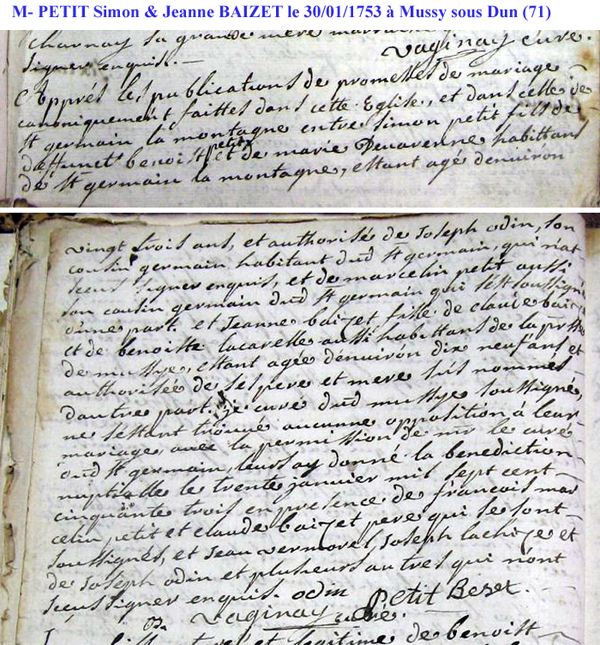 M- PETIT Simon & Jeanne BAIZET le 30/01/1753 à Mussy sous Dun (71)
charnay sa grande mere
signer enquis. — Vaginay Cure.
Apprés les publications de promesses de mariage
canoniquement faittes dans cette Eglise, et dans celle de
st germain la montagne entre simon petit fils de
deffunct benoist petit et de marie habittans
de st germain la montagne, estant agé denuiron
vingt trois ans, et authorisé de Joseph odin, son
cousin germain habitant dud st germain, qui n'at
sceu signer enquis, et de marcelin petit aussi
son cousin germain dud st germain qui sest soussigné
d'une part. et Jeanne baizet fille de claude baizet
et de benoitte lacarelle aussi habittans de la prsse
de mussye, estant agée denuiron dix neuf ans et
authorisée de ses pere et mere sus nommés
dautre part. Je curé dud mussye soussigné,
ne sestant trouué aucunne opposition à leur
mariage auec la permission de mr le curé
dud st germain, leurs ay donné la benediction
nuptialle le trente januier mil sept cent
cinquante trois en presence de francois mar
celin petit et claude baizet pere qui se sont
soussignés, et Jean vermorel, Joseph lachize et
de Joseph odin et plusieurs autres qui n'ont
sceu signer enquis. odin Petit Beset.
Vaginay curé.
et legitime de benoist